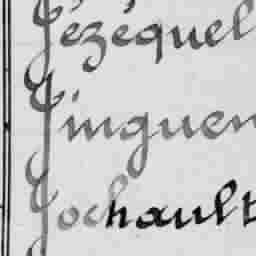 Jézéquel
Jinguen
Jochault